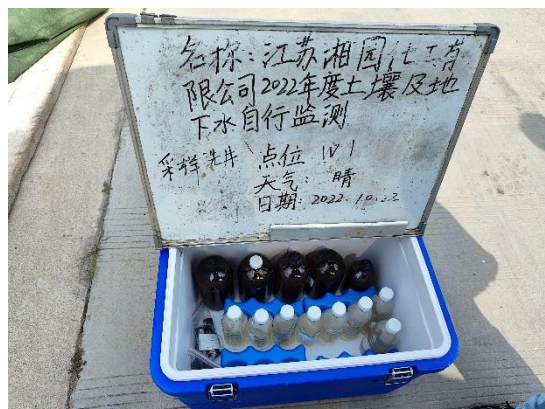 名称:江苏湘园化工有
限公司2022年度土壤及地
下水自行监测
采样洗井 点位 W1
天气: 晴
日期: 2022.10.22